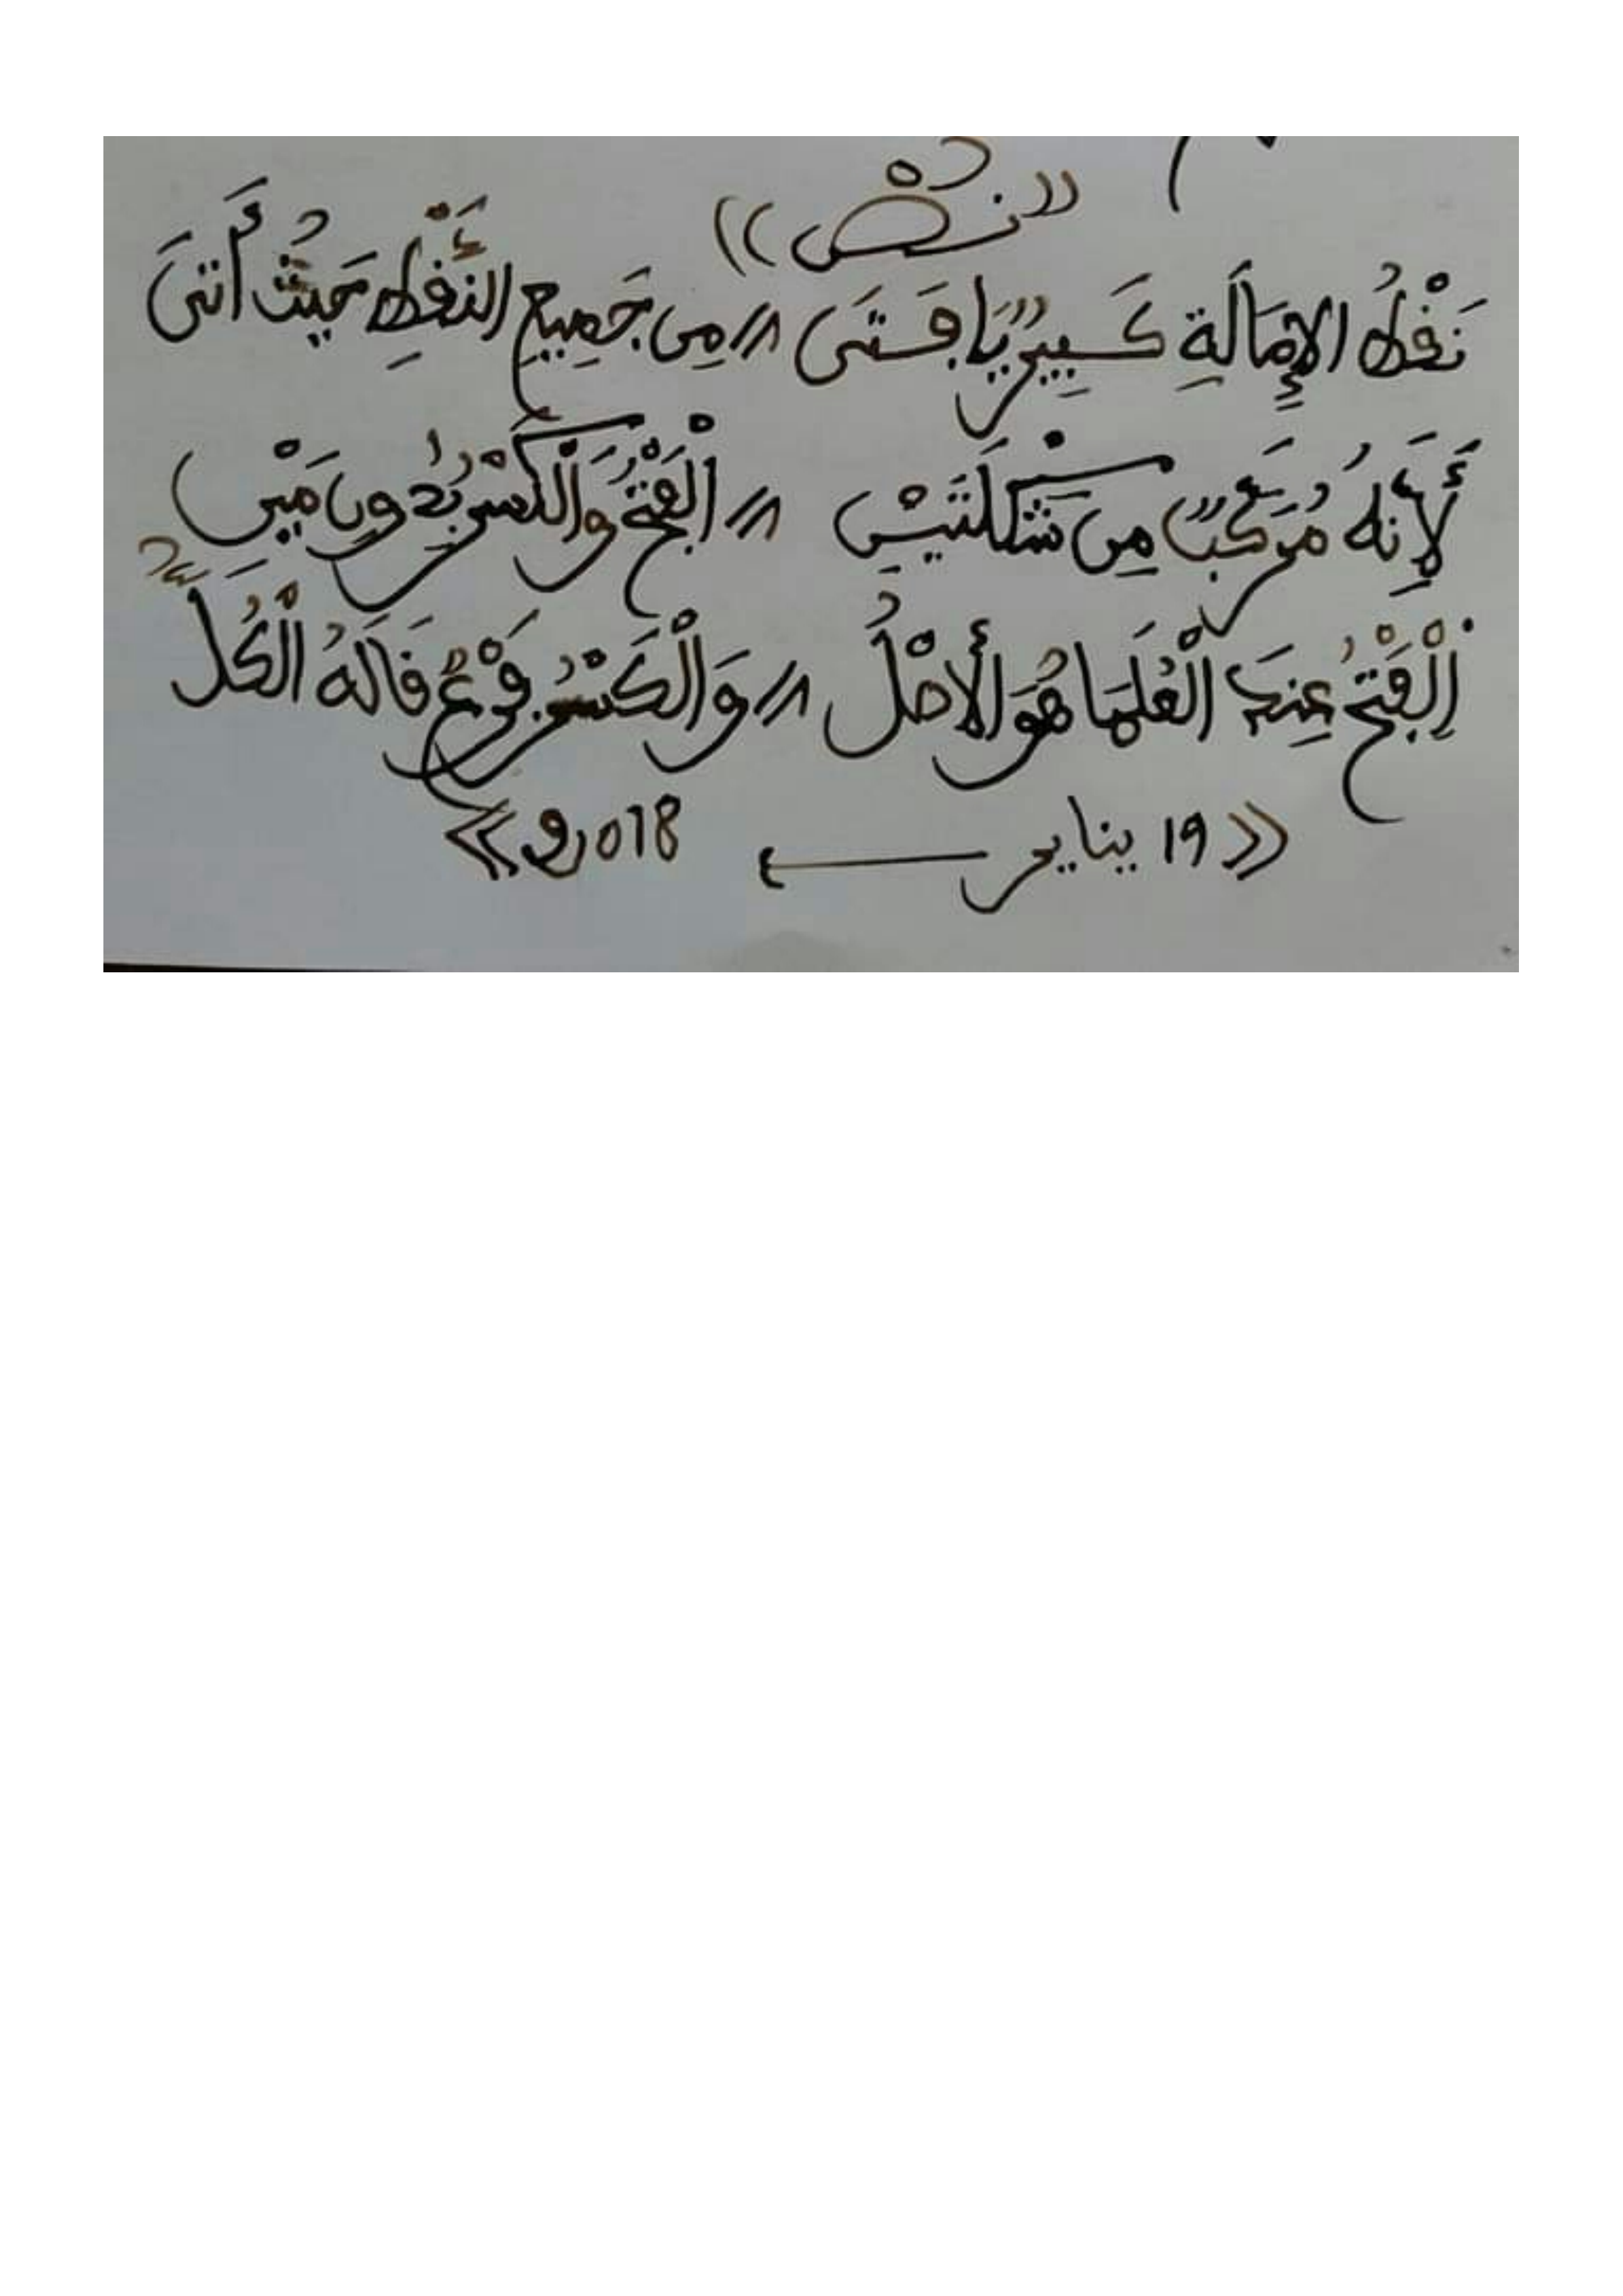 «نَصْ»
نَقْطُ الإِمَالَةِ كَبِيرٌ يَا فَتَى // مِن جَمِيعِ النَّقْطِ حَيْثُ أَتَى
لِأَنَّهُ مُرَكَّبٌ مِن شَكْلَتَيْنِ // الْفَتْحُ وَالْكَسْرُ بِدُونِ مَيْنِ
اِلْفَتْحُ عِندَ الْعُلَمَا هُوَ الأَصْلُ // وَالْكَسْرُ فَرْعٌ قَالَهُ الْكُلُّ
«19 يناير 2018»